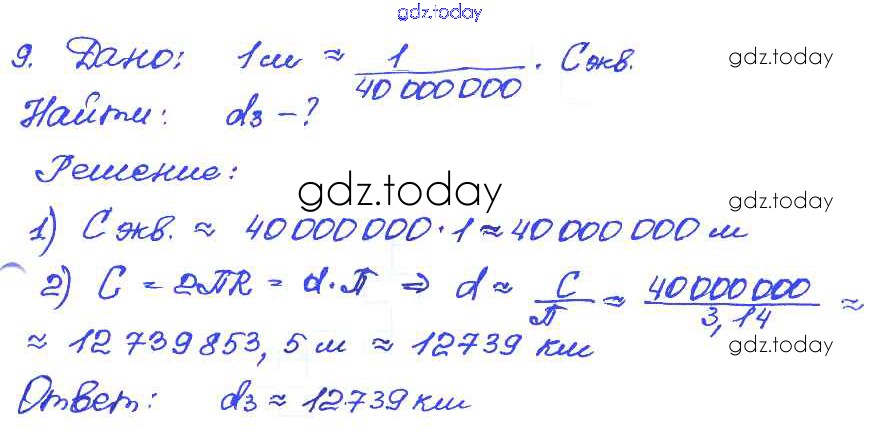 gdz.today
9. Дано: 1 м ≈ 1/40 000 000 · C экв. gdz.today
Найти: dз - ?
Решение:
gdz.today gdz.today
1) C экв. ≈ 40 000 000 · 1 ≈ 40 000 000 м
2) C = 2ПR = d · П ⇒ d ≈ C/П ≈ 40 000 000/3,14 ≈
≈ 12 739 853, 5 м ≈ 12739 км gdz.today
Ответ: dз ≈ 12739 км